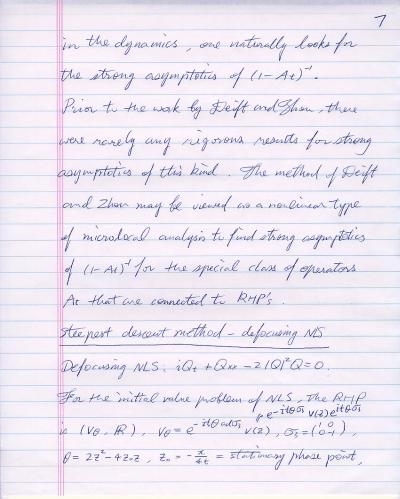 7
in the dynamics, one naturally looks for
the strong asymptotics of (1-At)⁻¹.
Prior to the work by Deift and Zhou, there
were rarely any rigorous results for strong
asymptotics of this kind. The method of Deift
and Zhou may be viewed as a nonlinear type
of microlocal analysis to find strong asymptotics
of (1-At)⁻¹ for the special class of operators
At that are connected to RHP's.
Steepest descent method - defocusing NLS
Defocusing NLS: iQt + Qxx - 2|Q|²Q = 0.
For the initial value problem of NLS, the RHP
e^{-itθσ₃} V(z) e^{itθσ₃}
is (Vθ, ℝ), Vθ = e^{-itθ adσ₃} V(z), σ₃ = (1 0 0 -1),
θ = 2z² - 4z₀z, z₀ = -x/4t = stationary phase point,